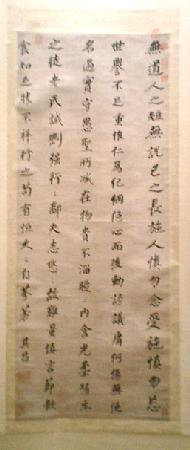 無道人之短無說己之長施人慎勿念受施慎勿忘
世譽不足慕惟仁為紀綱隱心而後動謗議庸何傷無使
名過實守愚聖所臧在涅貴不淄曖〻內含光柔弱生
之徒老氏誡剛彊行〻鄙夫志悠〻故難量慎言節飲
食知足勝不祥行之苟有恒久〻自芬芳 其昌